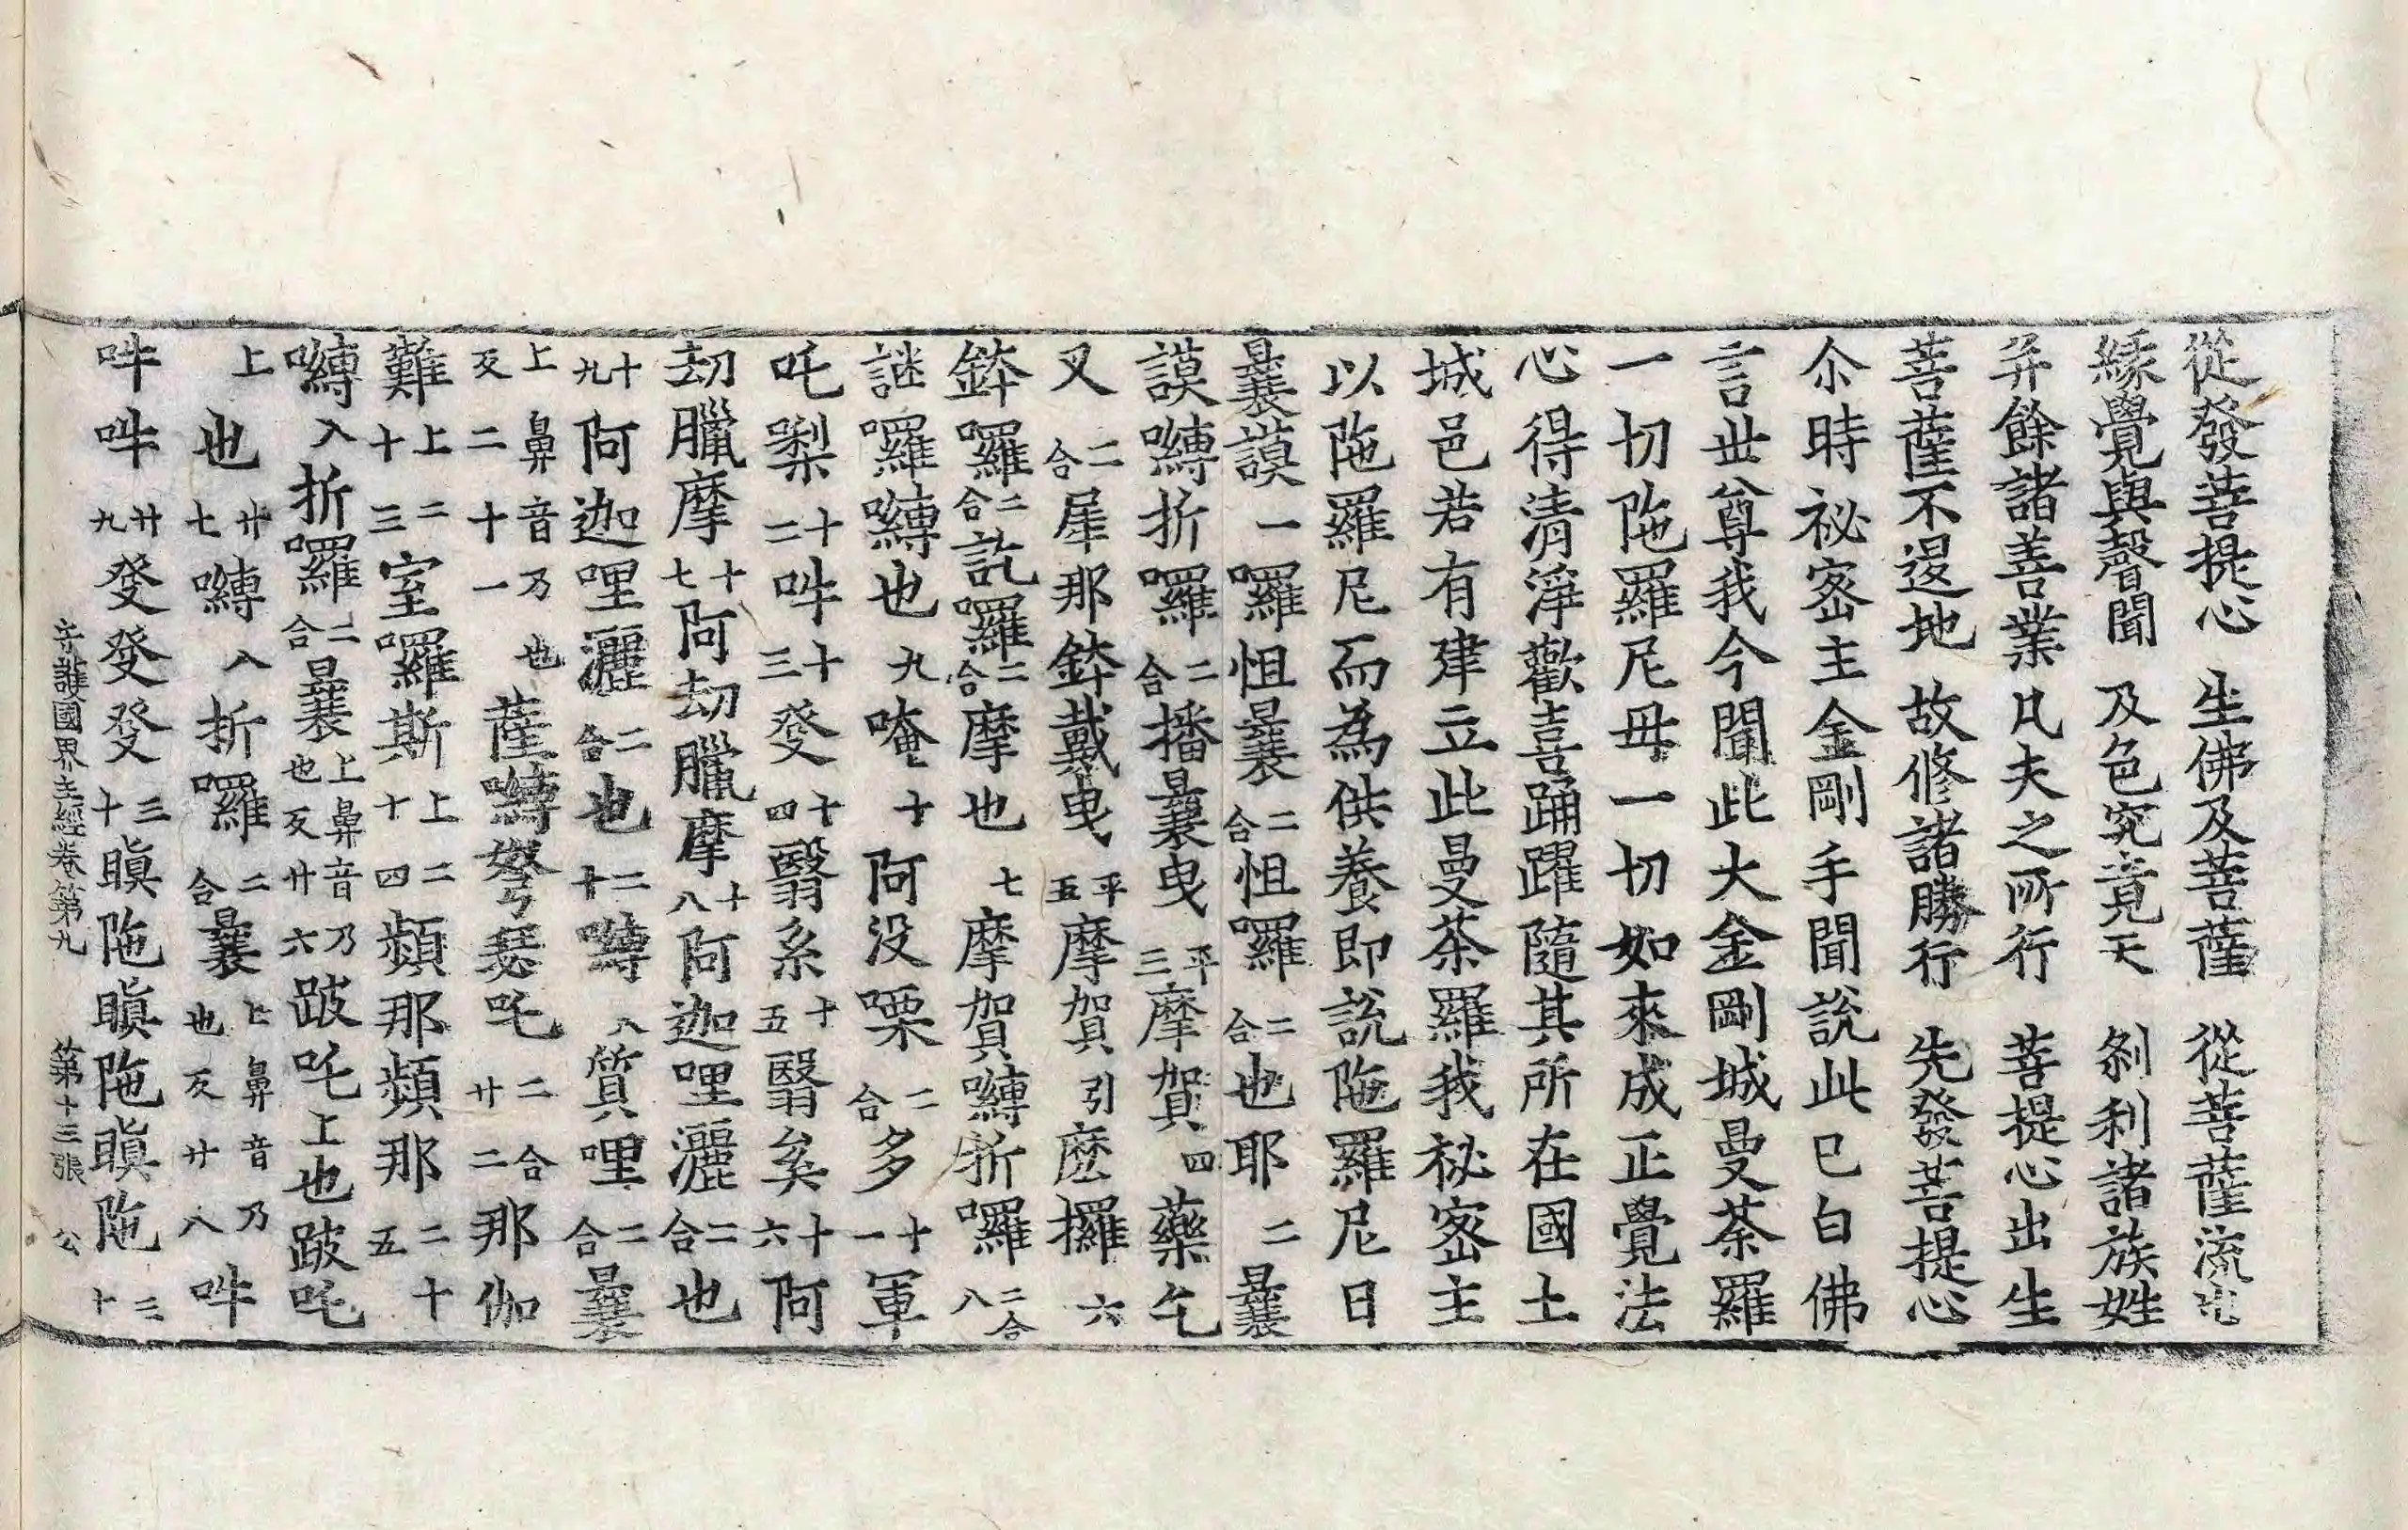 從發菩提心　生佛及菩薩　從菩薩流出
緣覺與聲聞　及色究竟天　剎利諸族姓
并餘諸善業　凡夫之所行　菩提心出生
菩薩不退地　故修諸勝行　先發菩提心
尒時祕密主金剛手聞說此已白佛
言世尊我今聞此大金剛城曼荼羅
一切陁羅尼母一切如來成正覺法
心得清淨歡喜踊躍隨其所在國土
城邑若有建立此曼荼羅我祕密主
以陁羅尼而為供養即說陁羅尼曰
曩謨一囉怛曩二合怛囉二合也耶二曩
謨嚩折囉二合播曩曳平三摩賀四藥乞
叉二合犀那鉢戴曳平五摩賀引麽攞六
鉢囉二合訖囉二合摩也七摩賀嚩折囉二合八
謎囉嚩也九唵十阿没㗚二合多十一軍
吒㘑十二吽十三癹十四翳系十五翳矣十六阿
刧臘摩十七阿刧臘摩十八阿迦哩灑二合也
十九阿迦哩灑二合也二十嚩入質哩二合曩
上鼻音乃也反二十一薩嚩弩瑟吒二合廿二那伽
難上二十三室囉斯上二十四頻那頻那二十五
嚩入折囉二合曩上鼻音乃也反廿六跛吒上也跛吒
上也廿七嚩入折囉二合曩上鼻音乃也反廿八吽
吽吽廿九癹癹癹三十瞋陁瞋陁瞋陁三十
守護國界主經卷第九　第十三張　公